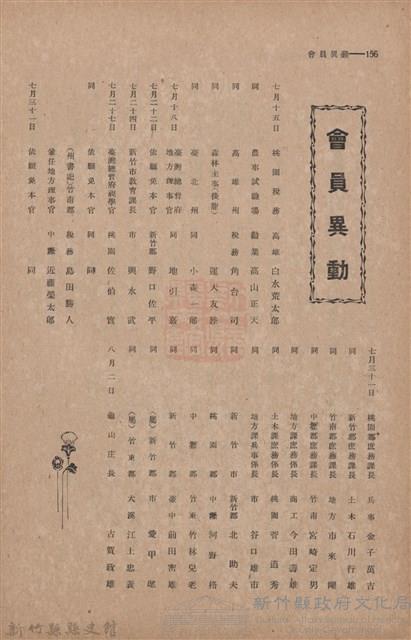 156——動異員會
會員異動
七月十五日 桃園稅務 高雄 白水荒太郎
同 農事試驗場 勸業 高山正天
同 高雄州 稅務 角台司
同 森林主事(後龍) 運天友
同 臺北州 同 小森二郎
七月十八日 臺灣總督府地方理事官 同 地引嘉
七月二十二日 依願免本官 新竹郡 野口佐平
七月二十四日 新竹市教育課長 市 興水武
七月二十七日 臺灣總督府視學官 桃園 佐伯實
同 依願免本官 同
(州書記)竹南郡 稅務 島田勝人
兼任地方理事官 中壢 近藤榮太郎
七月三十一日 依願免本官 同
七月三十一日 桃園郡庶務課長 兵事 金子萬吉
同 新竹郡庶務課長 土木 石川行雄
同 竹南郡庶務課長 地方 市來
同 中壢郡庶務課長 竹南 宮崎定男
同 地方課庶務係長 商工 今田壽雄
同 土木課庶務係長 桃園 菅道秀
同 地方課兵事係長 市 谷口雄市
同 新竹市 新竹郡 北助夫
同 桃園郡 中壢 河野格
同 中壢郡 竹東 竹林兒老
同 新竹郡 臺中 前田密雄
同 (屬)新竹郡 市 愛甲
同 (屬)竹東郡 大溪 江上忠義
八月二日 龜山庄長 古賀政雄
新竹縣縣史館
新竹縣政府文化局
Cultural Affairs Bureau